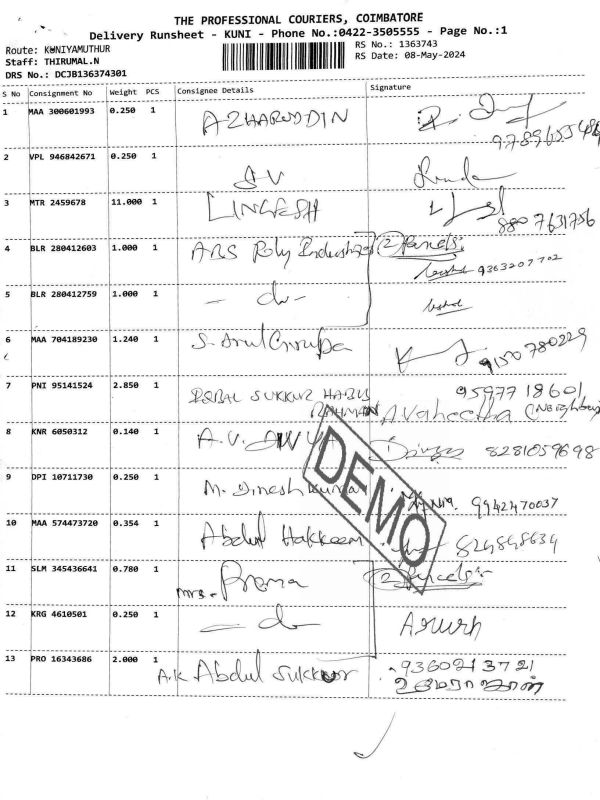 THE PROFESSIONAL COURIERS, COIMBATORE
Delivery Runsheet - KUNI - Phone No.:0422-3505555 - Page No.:1
Route: KUNIYAMUTHUR
RS No.: 1363743
Staff: THIRUMAL.N
RS Date: 08-May-2024
DRS No.: DCJB136374301
S No Consignment No Weight PCS Consignee Details Signature
1 MAA 300601993 0.250 1 AZHARUDDIN
2 VPL 946842671 0.250 1 S.V
3 MTR 2459678 11.000 1 LINGESH
8807631756
4 BLR 280412603 1.000 1 ABS Poly Industries (2) Parcels
9363207702
5 BLR 280412759 1.000 1 - do -
6 MAA 704189230 1.240 1 S. Arul Cirupa
9150780229
7 PNI 95141524 2.850 1 IQBAL SUKKUR HABIB 9597718601
RAHMAN A Vaheetha (Neighbour)
8 KNR 6050312 0.140 1 A.V. DIVYA Divya 8281059698
9 DPI 10711730 0.250 1 M. Dinesh Kumar 9942470037
10 MAA 574473720 0.354 1 Abdul Hakkeem
DEMO
11 SLM 345436641 0.780 1 Mrs. Prema (2) Parcels
12 KRG 4610501 0.250 1 - do -
13 PRO 16343686 2.000 1 A.K Abdul Sukkur 9360213721